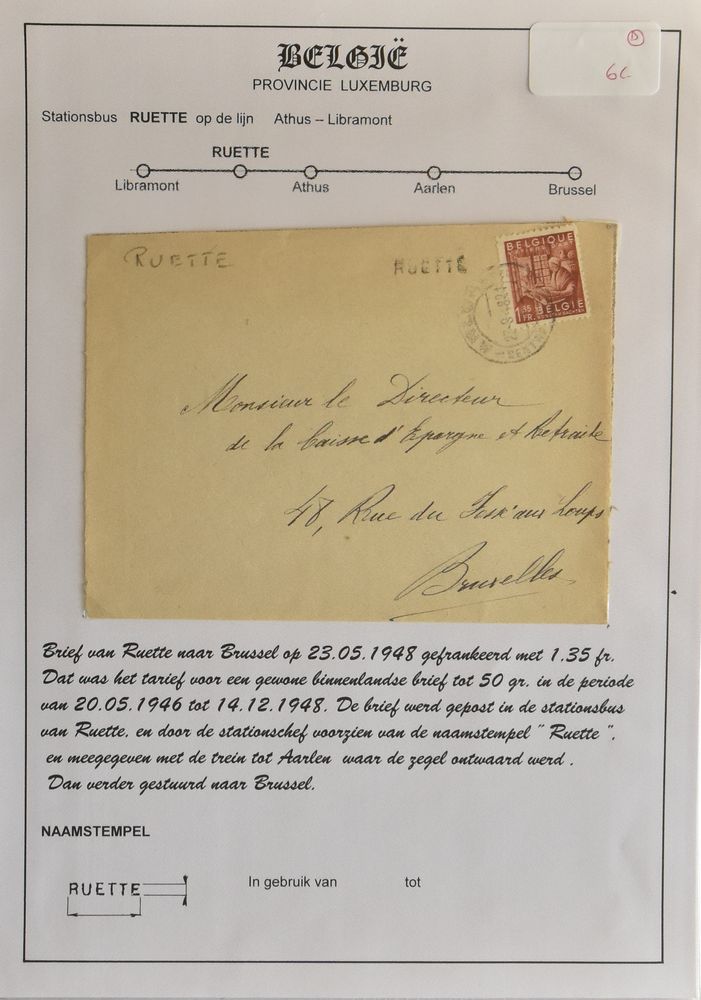 BELGIË
PROVINCIE LUXEMBURG
D
6C
Stationsbus RUETTE op de lijn Athus – Libramont
RUETTE
Libramont Athus Aarlen Brussel
RUETTE
RUETTE
BELGIQUE
1 35 BELGIË
FR.
Monsieur le Directeur
de la Caisse d'Epargne et Retraite
48, Rue du Fossé aux Loups
Bruxelles
Brief van Ruette naar Brussel op 23.05.1948 gefrankeerd met 1.35 fr.
Dat was het tarief voor een gewone binnenlandse brief tot 50 gr. in de periode
van 20.05.1946 tot 14.12.1948. De brief werd gepost in de stationsbus
van Ruette, en door de stationschef voorzien van de naamstempel " Ruette ",
en meegegeven met de trein tot Aarlen waar de zegel ontwaard werd .
Dan verder gestuurd naar Brussel.
NAAMSTEMPEL
RUETTE
In gebruik van tot